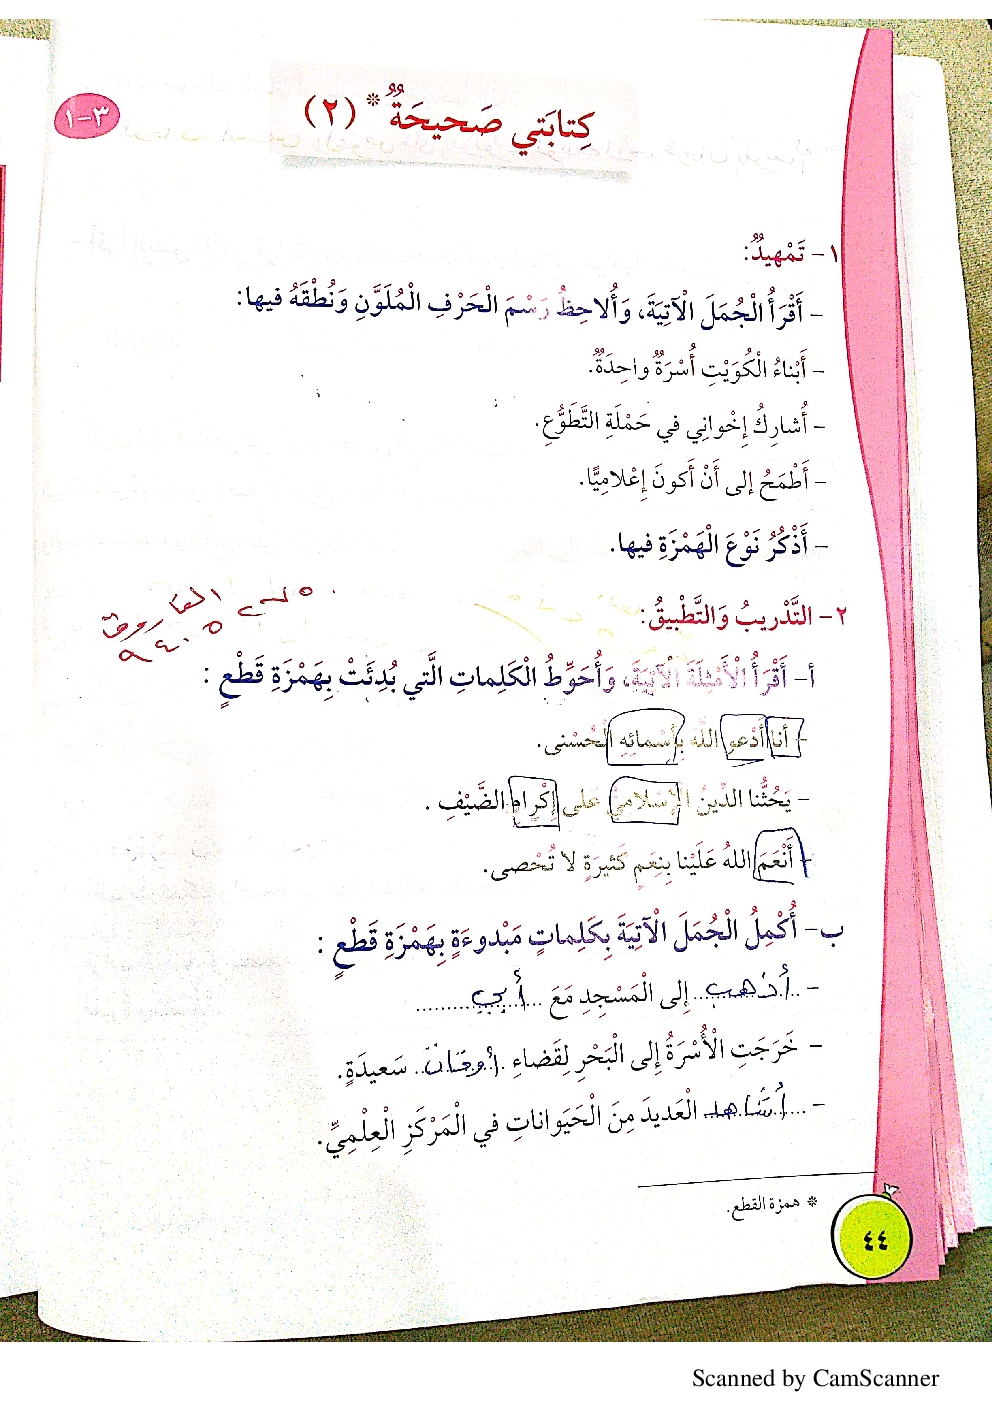 ٣-١
كِتابَتي صَحيحَةٌ * (٢)
١- تَمْهيدٌ:
- أَقْرَأُ الْجُمَلَ الْآتِيَةَ، وَأُلاحِظُ رَسْمَ الْحَرْفِ الْمُلَوَّنِ وَنُطْقَهُ فيها:
- أَبْناءُ الْكُوَيْتِ أُسْرَةٌ واحِدَةٌ.
- أُشارِكُ إِخْواني في حَمْلَةِ التَّطَوُّعِ.
- أَطْمَحُ إلى أَنْ أَكونَ إِعْلامِيًّا.
- أَذْكُرُ نَوْعَ الْهَمْزَةِ فيها.
٢- التَّدْريبُ وَالتَّطْبيقُ:
أ- أَقْرَأُ الْأَمْثِلَةَ الْآتِيَةَ، وَأُحَوِّطُ الْكَلِماتِ الَّتي بُدِئَتْ بِهَمْزَةِ قَطْعٍ :
- أنا أَدْعو اللهَ بِأَسْمائِهِ الْحُسْنى.
- يَحُثُّنا الدّينُ الْإِسْلامِيُّ عَلى إِكْرامِ الضَّيْفِ .
- أَنْعَمَ اللهُ عَلَيْنا بِنِعَمٍ كَثيرَةٍ لا تُحْصى.
ب- أُكْمِلُ الْجُمَلَ الْآتِيَةَ بِكَلِماتٍ مَبْدوءَةٍ بِهَمْزَةِ قَطْعٍ :
- أذهب إِلى الْمَسْجِدِ مَعَ أبي
- خَرَجَتِ الْأُسْرَةُ إِلى الْبَحْرِ لِقَضاءِ أوقات سَعيدَةٍ.
- أُشَاهد الْعَديدَ مِنَ الْحَيَواناتِ في الْمَرْكَزِ الْعِلْمِيِّ.
* همزة القطع.
٤٤
Scanned by CamScanner